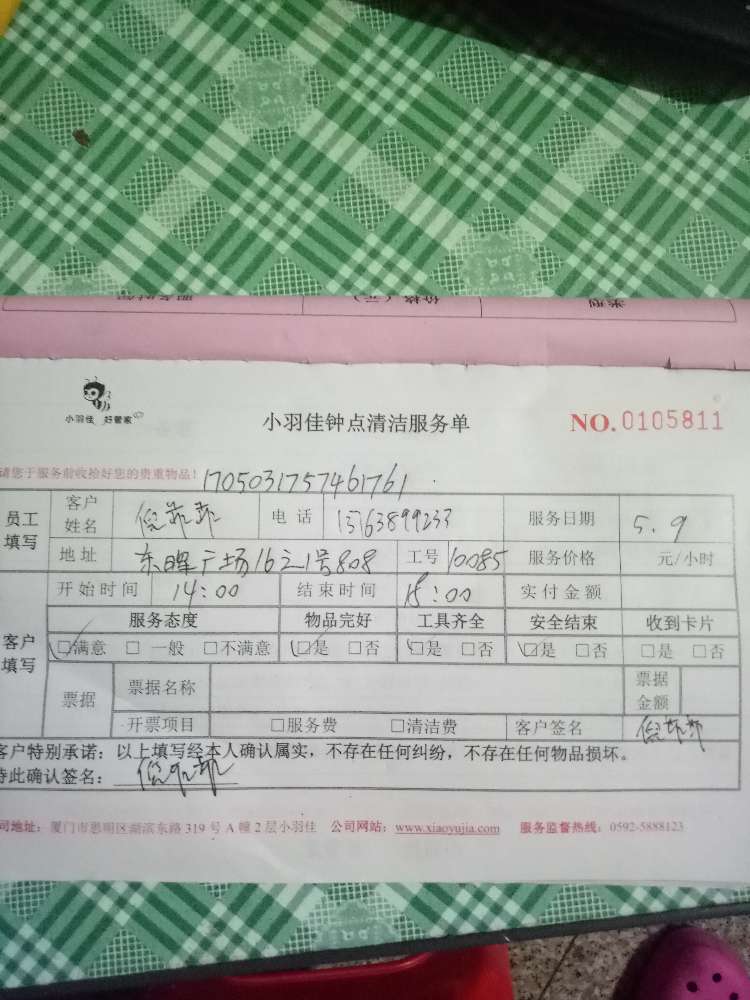 类型 价格（元） 服务时间
小羽佳 好管家
小羽佳钟点清洁服务单 NO.0105811
请您于服务前收捡好您的贵重物品！ 1705031757461761
员工填写 客户姓名 倪菲菲 电话 15163899233 服务日期 5.9
地址 东晖广场16之1号808 工号 10085 服务价格 元/小时
客户填写 开始时间 14:00 结束时间 18:00 实付金额
服务态度 物品完好 工具齐全 安全结束 收到卡片
☑满意 □一般 □不满意 ☑是 □否 ☑是 □否 ☑是 □否 □是 □否
票据 票据名称 票据金额
开票项目 □服务费 □清洁费 客户签名 倪菲菲
客户特别承诺：以上填写经本人确认属实，不存在任何纠纷，不存在任何物品损坏。
特此确认签名： 倪菲菲
司地址：厦门市思明区湖滨东路 319 号 A 幢 2 层小羽佳 公司网站：www.xiaoyujia.com 服务监督热线：0592-5888123